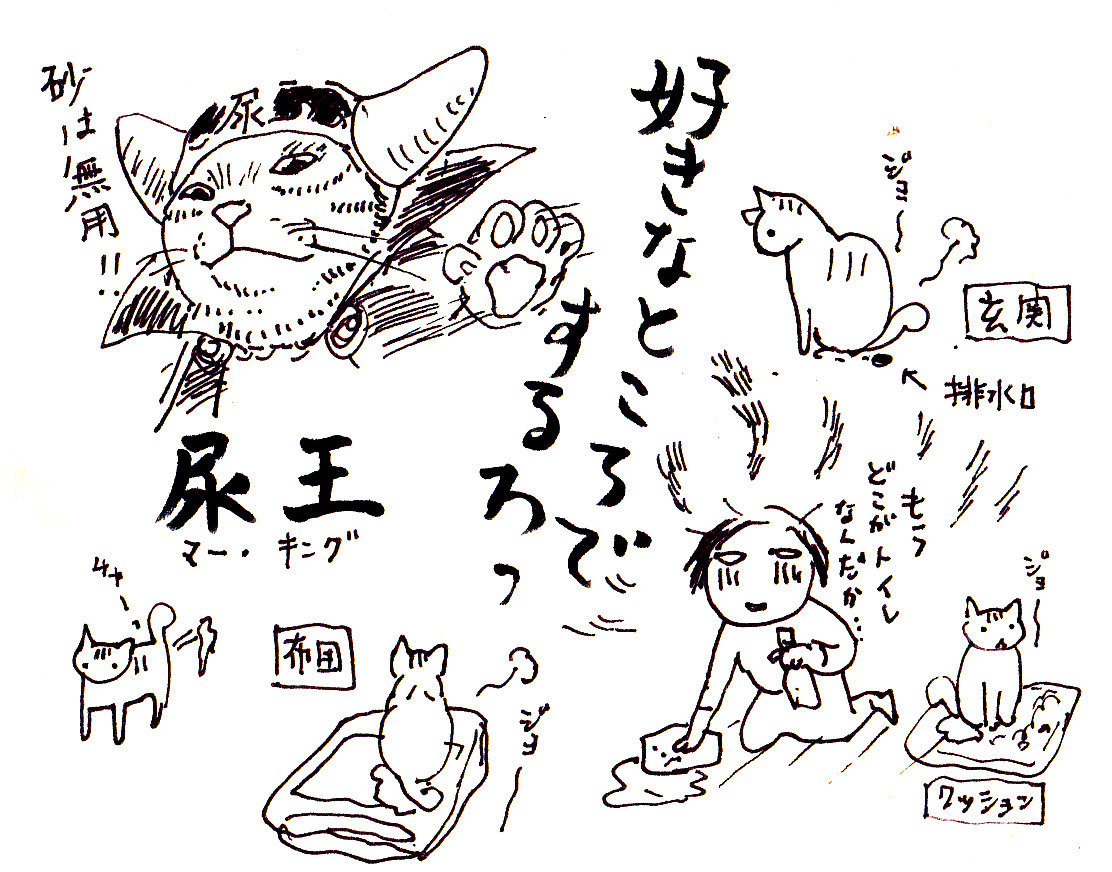 好きなところで
するろっ
尿王
砂は無用!!
尿王
マー・キング
ジョー
玄関
排水口
もう
どこがトイレ
なんだか…
ジョー
クッション
チャー
布団
ジョー